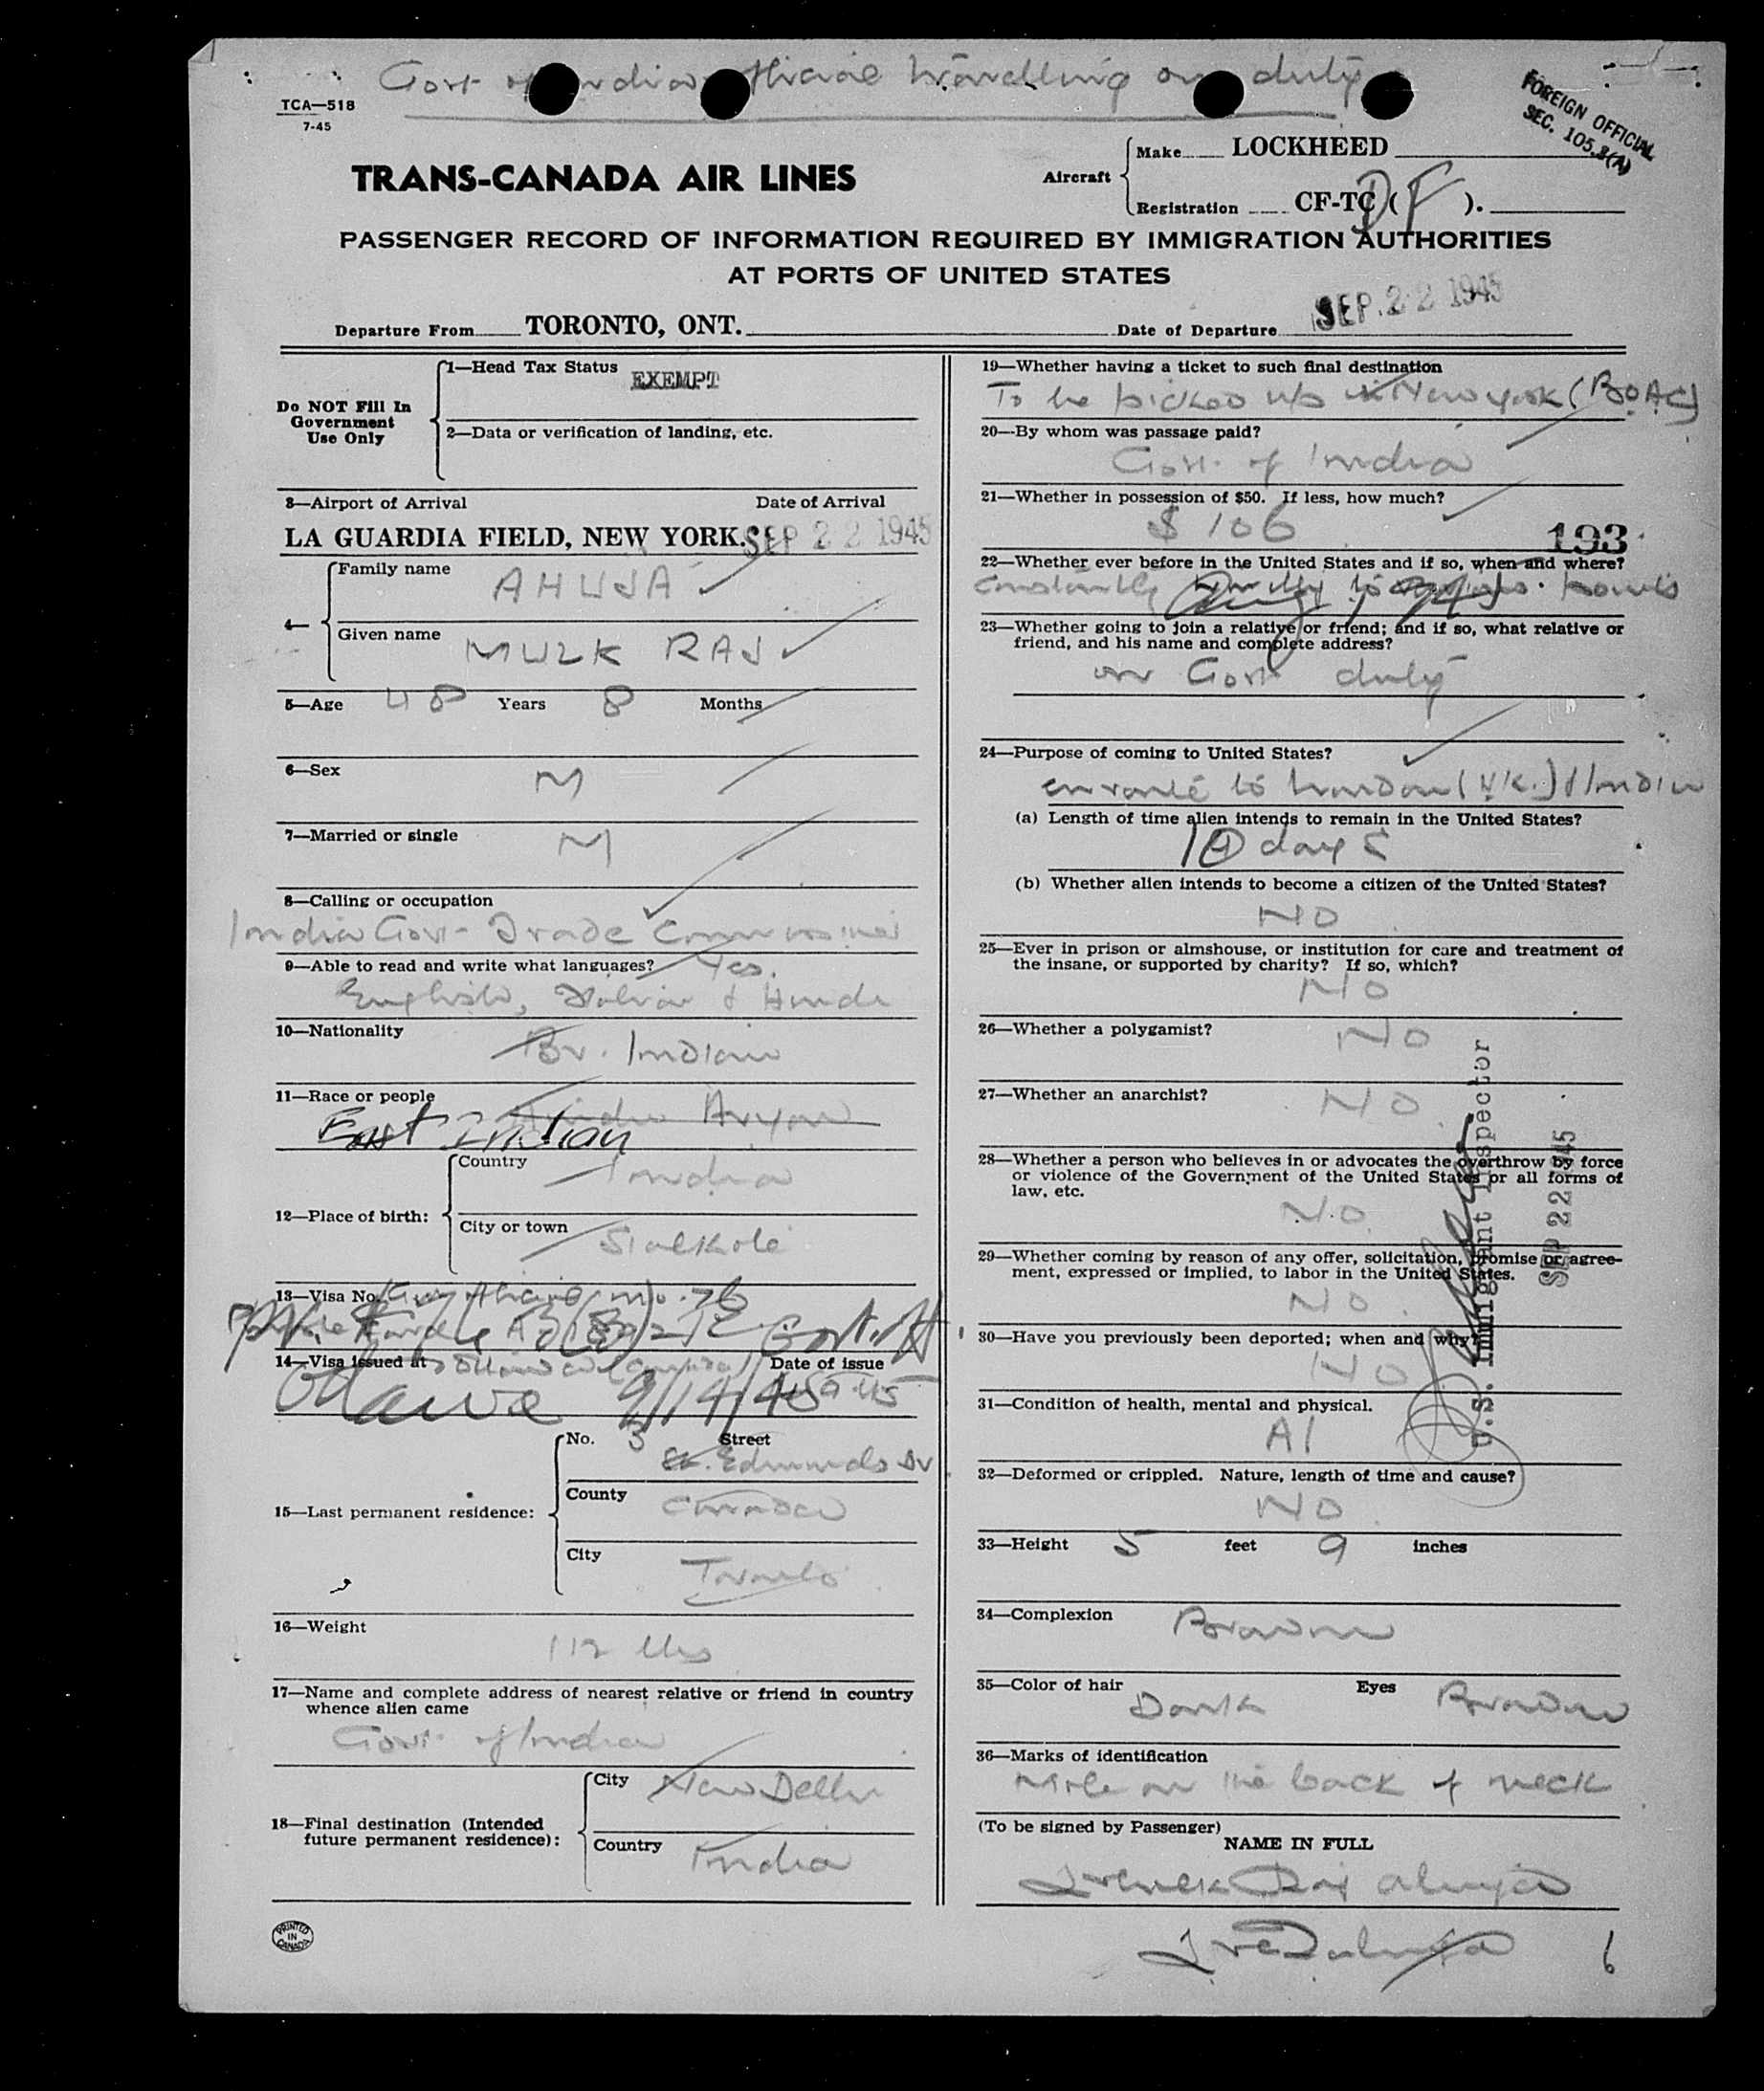 Govt of India official travelling on duty
TCA—518
7-45
FOREIGN OFFICIAL
SEC. 105.3(A)
TRANS-CANADA AIR LINES
Aircraft
Make LOCKHEED
Registration CF-TC ( DF ).
PASSENGER RECORD OF INFORMATION REQUIRED BY IMMIGRATION AUTHORITIES
AT PORTS OF UNITED STATES
Departure From TORONTO, ONT. Date of Departure SEP. 22 1945
Do NOT Fill In
Government
Use Only
1—Head Tax Status EXEMPT
2—Data or verification of landing, etc.
3—Airport of Arrival Date of Arrival
LA GUARDIA FIELD, NEW YORK. SEP 22 1945
4— Family name AHUJA
Given name MULK RAJ
5—Age 48 Years 8 Months
6—Sex M
7—Married or single M
8—Calling or occupation
India Govt Trade Commissioner
9—Able to read and write what languages? Yes.
English, Italian & Hindi
10—Nationality Br. Indian
11—Race or people Hindu Aryan
East Indian
12—Place of birth:
Country India
City or town Sialkote
13—Visa No.
14—Visa issued at Date of issue
Ottawa 9/14/45
15—Last permanent residence:
No. 3 Street
St. Edmunds Dr
County Canada
City Toronto
16—Weight 112 lbs
17—Name and complete address of nearest relative or friend in country
whence alien came
Govt of India
18—Final destination (Intended
future permanent residence):
City New Delhi
Country India
PRINTED
IN
CANADA
19—Whether having a ticket to such final destination
To be picked up in New York (BOAC)
20—By whom was passage paid?
Govt. of India
21—Whether in possession of $50. If less, how much?
$ 106
193
22—Whether ever before in the United States and if so, when and where?
Constantly
23—Whether going to join a relative or friend; and if so, what relative or
friend, and his name and complete address?
on Govt duty
24—Purpose of coming to United States?
en route to London (U.K.) & India
(a) Length of time alien intends to remain in the United States?
days
(b) Whether alien intends to become a citizen of the United States?
NO
25—Ever in prison or almshouse, or institution for care and treatment of
the insane, or supported by charity? If so, which?
NO
26—Whether a polygamist? NO
27—Whether an anarchist? NO
28—Whether a person who believes in or advocates the overthrow by force
or violence of the Government of the United States or all forms of
law, etc.
NO
29—Whether coming by reason of any offer, solicitation, promise or agree-
ment, expressed or implied, to labor in the United States.
NO
30—Have you previously been deported; when and why?
NO
31—Condition of health, mental and physical.
A1
32—Deformed or crippled. Nature, length of time and cause?
NO
U.S. Immigrant Inspector
SEP 22 1945
33—Height 5 feet 9 inches
34—Complexion Brown
35—Color of hair Dark Eyes Brown
36—Marks of identification
Mole on the back of neck
(To be signed by Passenger)
NAME IN FULL
Mulk Raj Ahuja
6